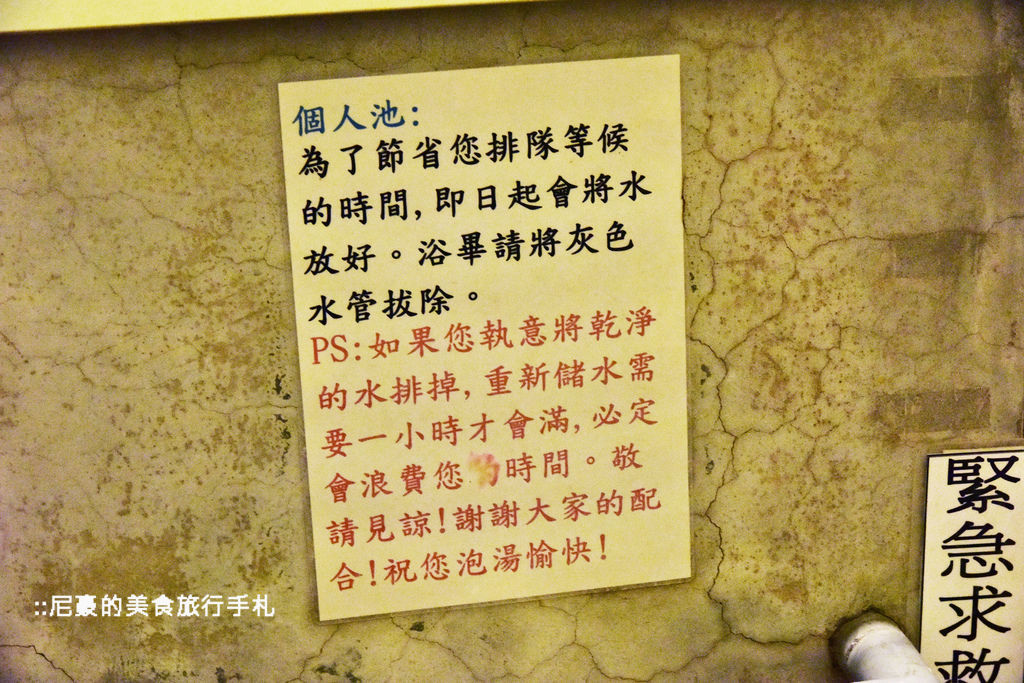 個人池:
為了節省您排隊等候
的時間,即日起會將水
放好。浴畢請將灰色
水管拔除。
PS:如果您執意將乾淨
的水排掉,重新儲水需
要一小時才會滿,必定
會浪費您的時間。敬
請見諒!謝謝大家的配
合!祝您泡湯愉快!
緊急求救
::尼豪的美食旅行手札